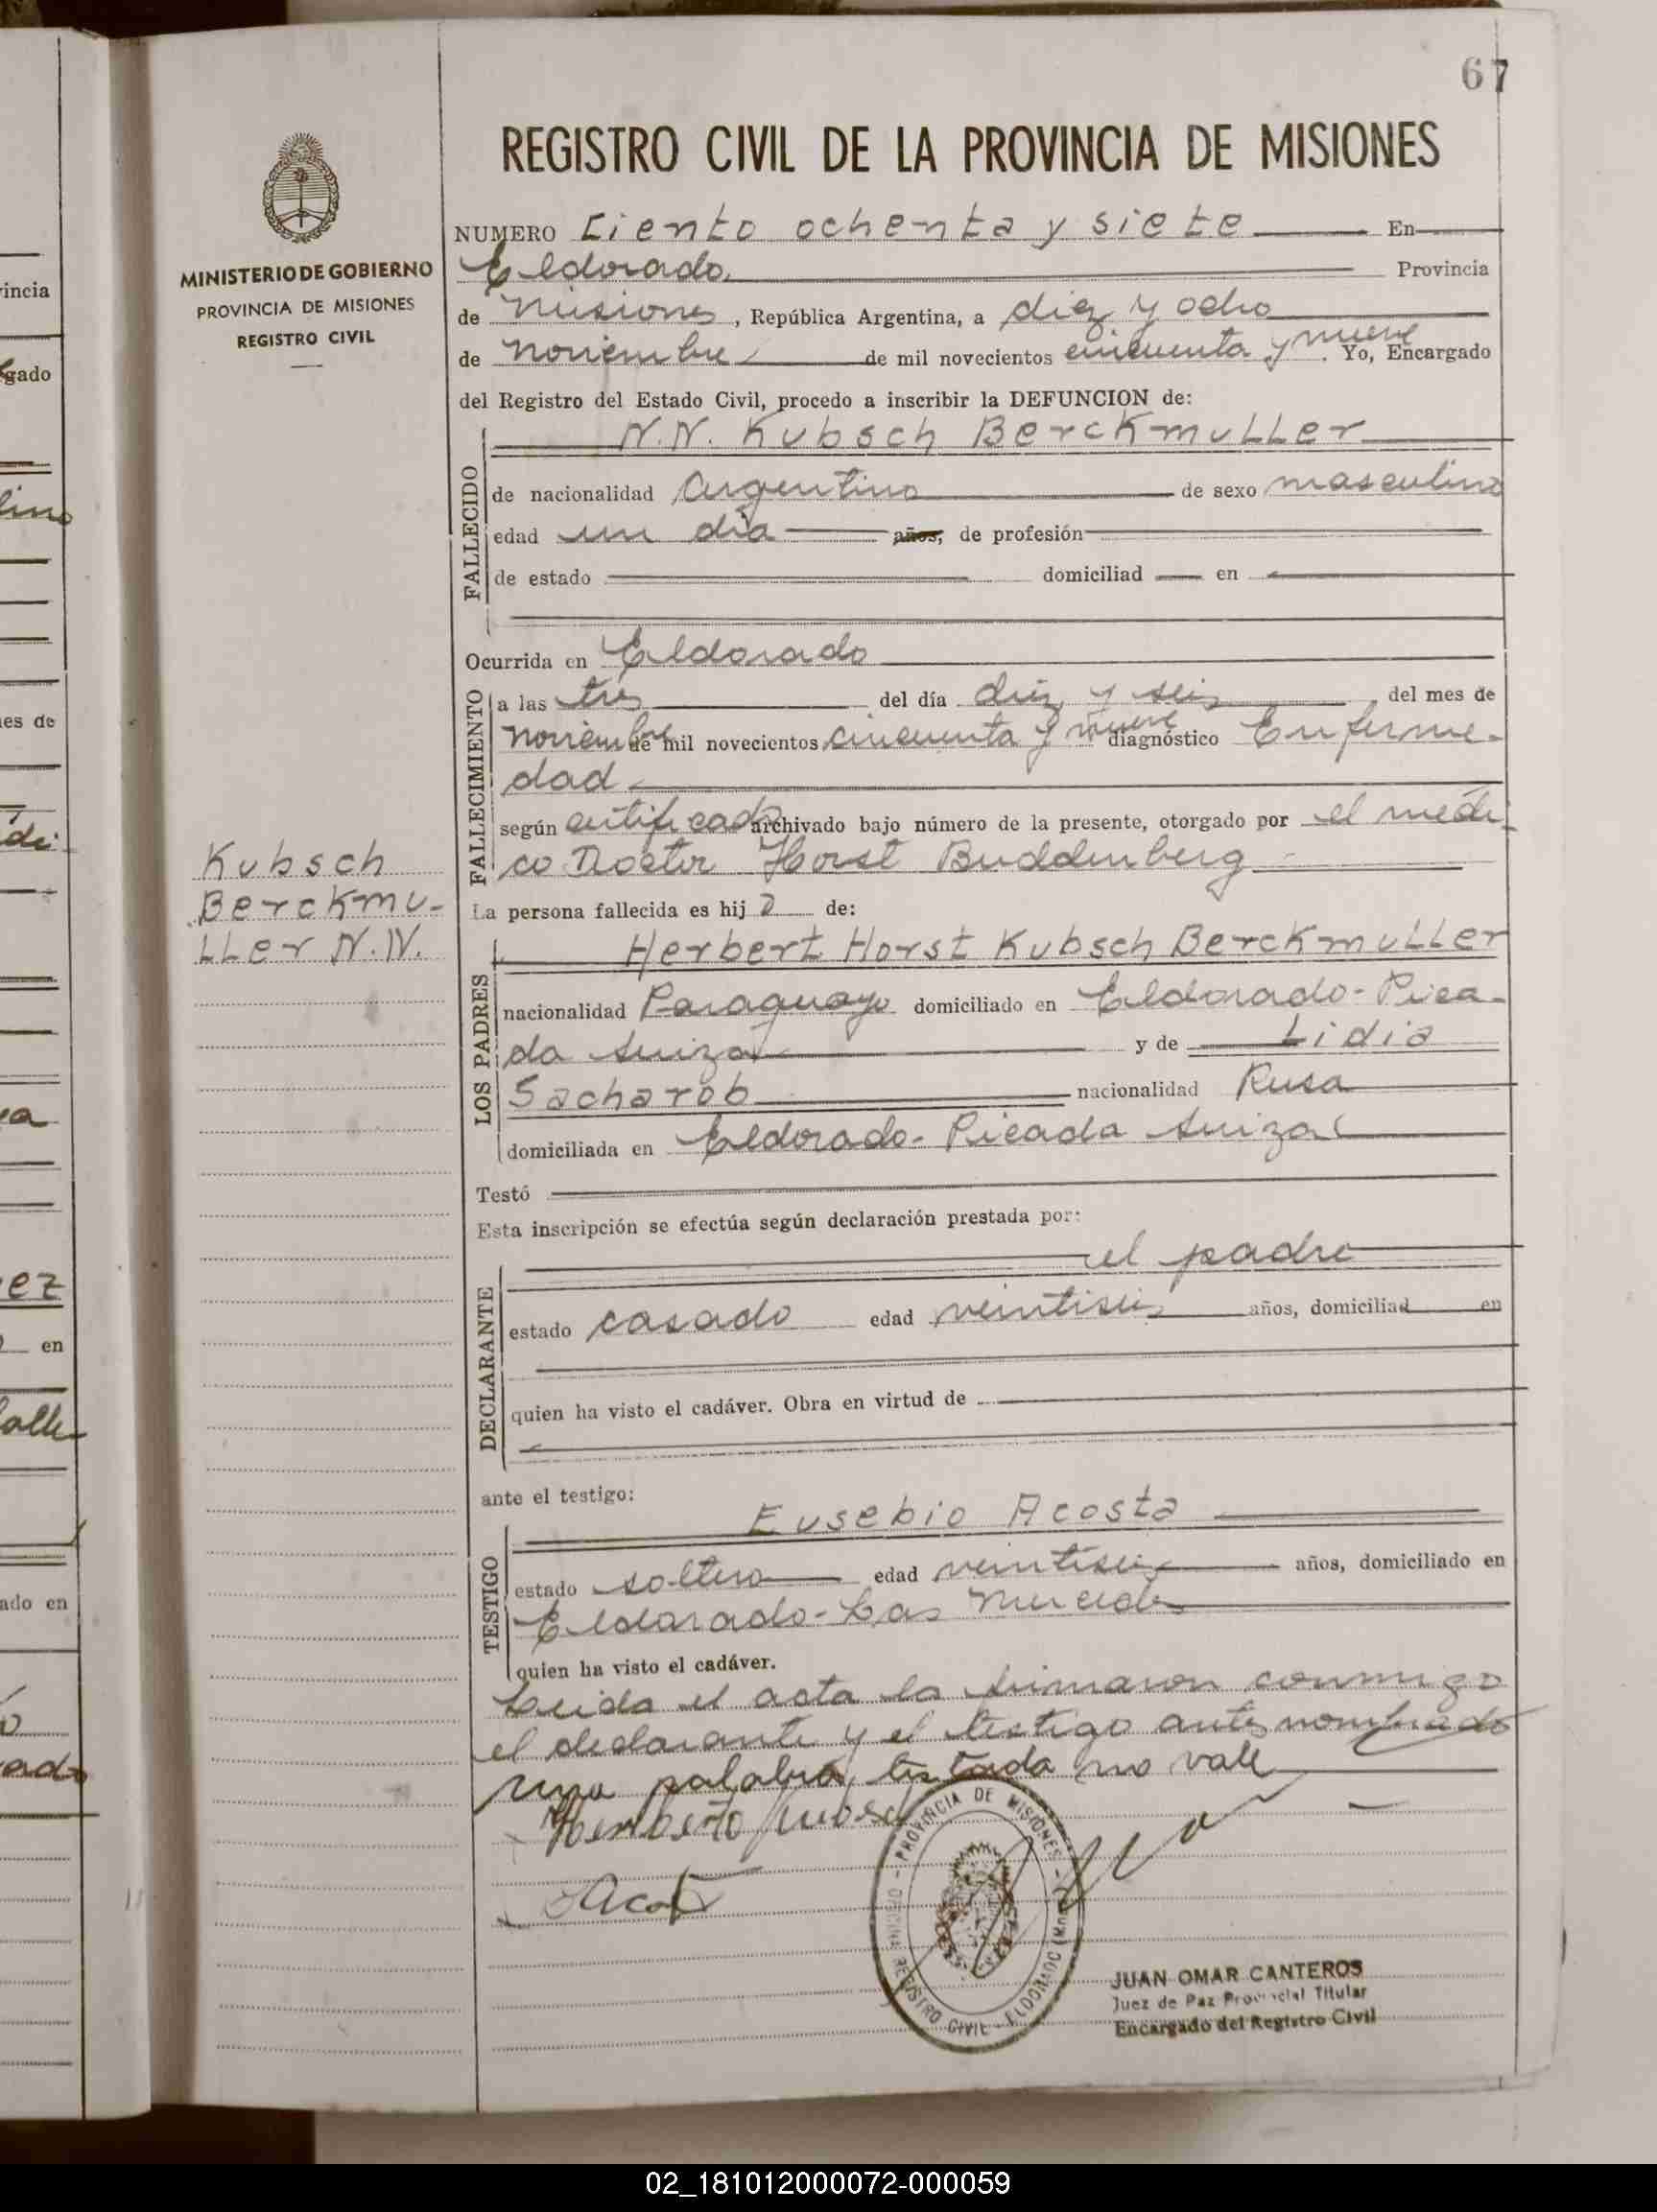 67
REGISTRO CIVIL DE LA PROVINCIA DE MISIONES
MINISTERIO DE GOBIERNO
PROVINCIA DE MISIONES
REGISTRO CIVIL
NUMERO Ciento ochenta y siete En
Eldorado. Provincia
de Misiones, República Argentina, a diez y ocho
de noviembre de mil novecientos cincuenta y nueve. Yo, Encargado
del Registro del Estado Civil, procedo a inscribir la DEFUNCION de:
N.N. Kubsch Berckmuller
FALLECIDO
de nacionalidad Argentino de sexo masculino
edad un día años, de profesión
de estado domiciliad en
Ocurrida en Eldorado
FALLECIMIENTO
a las tres del día diez y seis del mes de
noviembre de mil novecientos cincuenta y nueve diagnóstico Enferme-
dad
según certificado archivado bajo número de la presente, otorgado por el médi-
co Doctor Horst Buddenberg
Kubsch
Berckmu-
ller N.N.
La persona fallecida es hijo de:
LOS PADRES
Herbert Horst Kubsch Berckmuller
nacionalidad Paraguayo domiciliado en Eldorado-Pica-
da Suiza y de Lidia
Sacharob nacionalidad Rusa
domiciliada en Eldorado-Picada Suiza
Testó
Esta inscripción se efectúa según declaración prestada por:
DECLARANTE
el padre
estado casado edad veintiseis años, domiciliad en
quien ha visto el cadáver. Obra en virtud de
ante el testigo:
TESTIGO
Eusebio Acosta
estado soltero edad veintiseis años, domiciliado en
Eldorado-Las Mercedes
quien ha visto el cadáver.
Leida el acta la firmaron conmigo
el declarante y el testigo antes nombrado
una palabra testada no vale
Herberto Kubsch
EAcosta
PROVINCIA DE MISIONES - OFICINA REGISTRO CIVIL - ELDORADO (Mnes.)
JUAN OMAR CANTEROS
Juez de Paz Provincial Titular
Encargado del Registro Civil
02_181012000072-000059